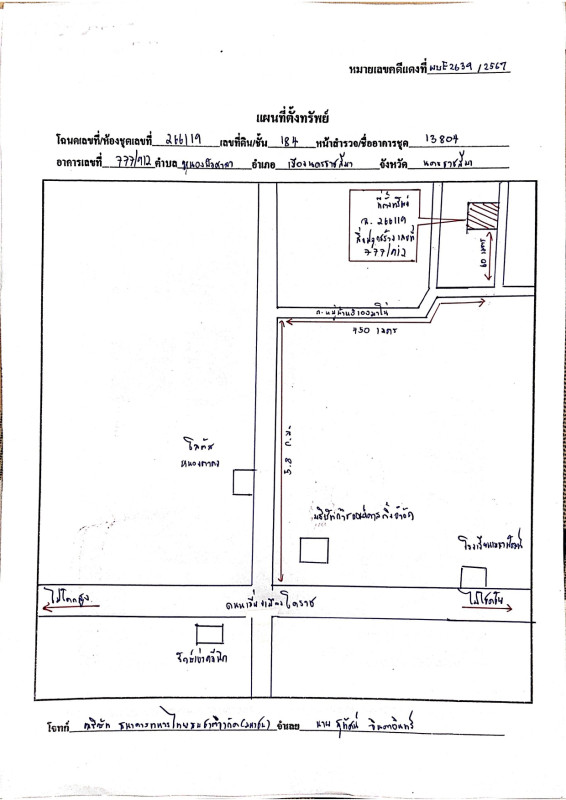 หมายเลขคดีแดงที่ ผบE2639 /2567
แผนที่ตั้งทรัพย์
โฉนดเลขที่/ห้องชุดเลขที่ 266119 เลขที่ดิน/ชั้น 184 หน้าสำรวจ/ชื่ออาคารชุด 13804
อาคารเลขที่ 777/712 ตำบล หนองบัวศาลา อำเภอ เมืองนครราชสีมา จังหวัด นครราชสีมา
ที่ตั้งทรัพย์
ฉ. 266119
สิ่งปลูกสร้างเลขที่
777/712
60 เมตร
450 เมตร
5.8 ก.ม.
โลตัส
โรงเรียน
ไปโคกสูง
ถนนเลี่ยงเมืองโคราช
ไปโชคชัย
โจทก์ บริษัท ธนาคารทหารไทยธนชาตจำกัด(มหาชน) จำเลย นาย